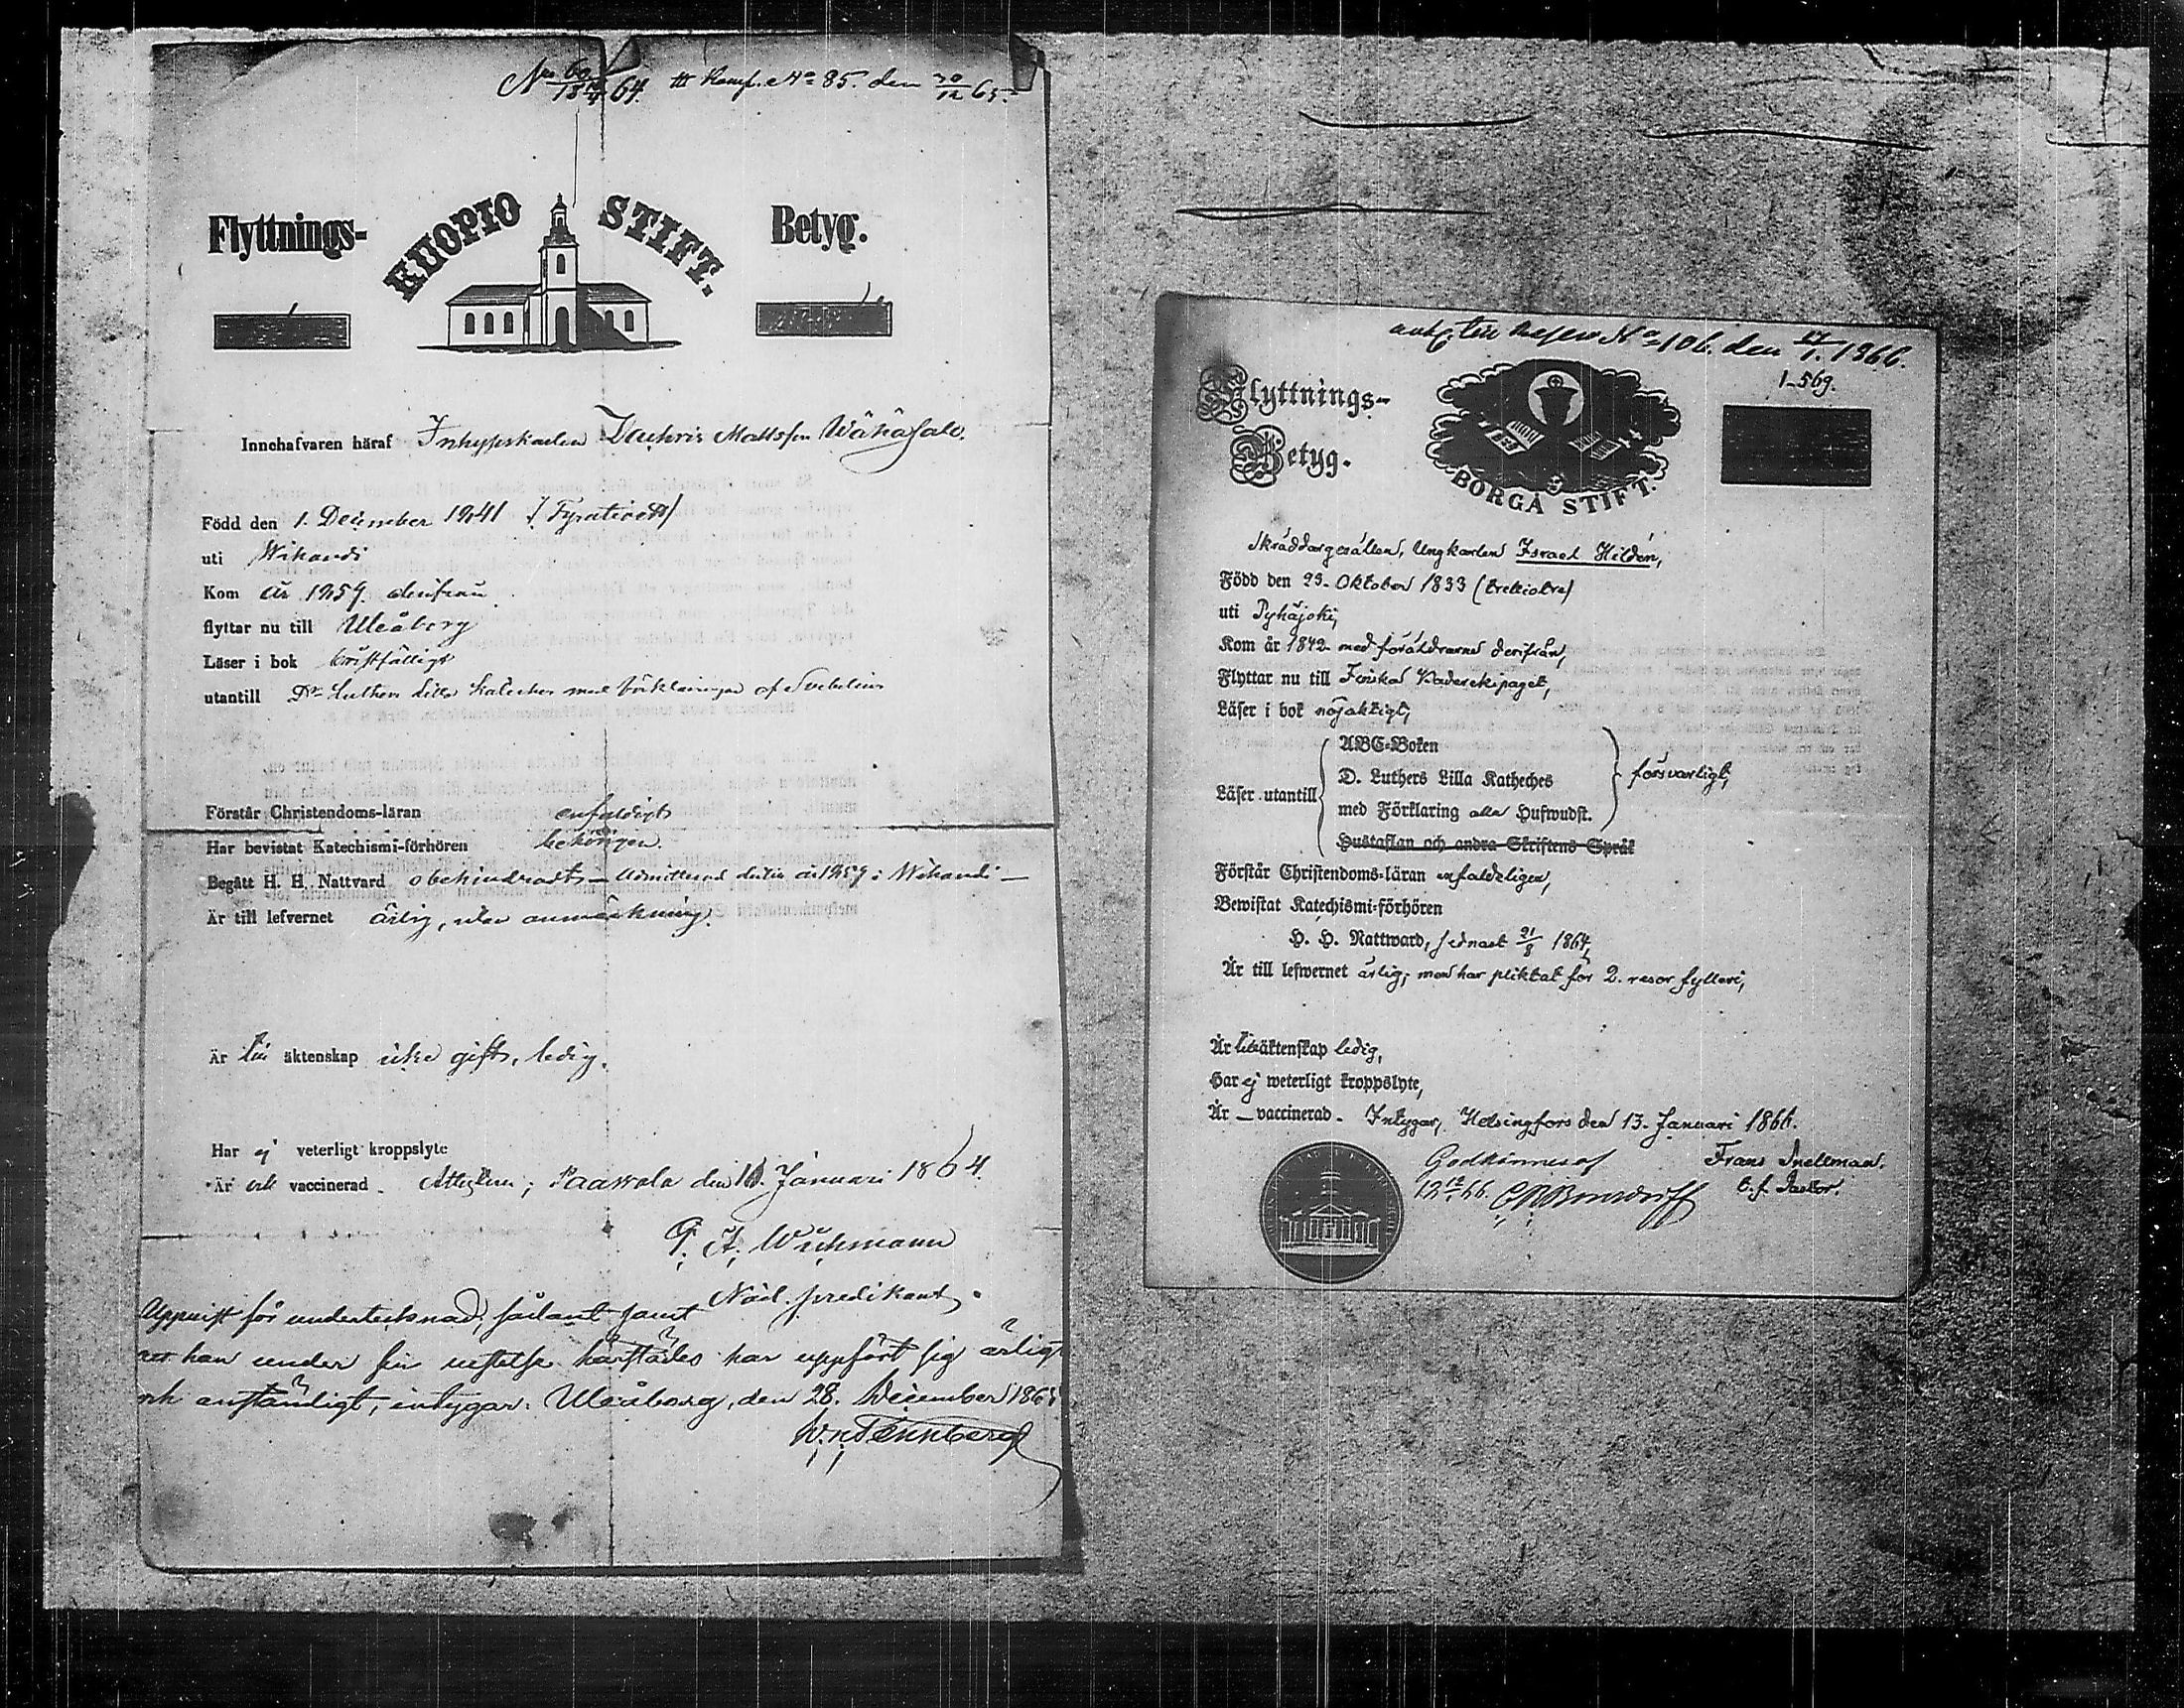 No 60/18 64. III Komp. No 85. den 30/12 65.
Flyttnings- KUOPIO STIFT. Betyg.
Innehafvaren häraf Inhyseskarlen Zachris Mattsson Wähäsalo.
Född den 1. December 1841 (Fyratioett)
uti Wihandi
Kom år 1859 derifrån
flyttar nu till Uleåborg
Läser i bok bristfälligt
utantill Dr Luthers Lilla Kateches med förklaringen af Svebelius
Förstår Christendoms-läran enfaldigt
Har bevistat Katechismi-förhören behörigen.
Begått H. H. Nattvard obehindradt – Admitterad dertill år 1859 i Wihandi –
Är till lefvernet ärlig, utan anmärkning.
Är till äktenskap icke gift, ledig.
Har ej veterligt kroppslyte
Är vaccinerad. Attestera; Paavola den 10. Januari 1864.
Nåd. predikant.
Uppvist för undertecknad, sådant samt
att han under sin vistelse härstädes har uppfört sig ärligt
och anständigt, intygar. Uleåborg, den 28. December 1865
No 106. den 17/1. 1866.
1-569.
Flyttnings-
Betyg.
BORGÅ STIFT.
Skräddargesällen, Ungkarlen Israel Hildén,
Född den 23. Oktober 1833 (trettiotre)
uti Pyhäjoki,
Kom år 1842 med föräldrarne derifrån,
Flyttar nu till Finska Kadersekipaget,
Läser i bok nöjaktigt,
Läser utantill
ABC-Boken
D. Luthers Lilla Katheches
med Förklaring alla Hufwudst.
försvarligt,
Hustaflan och andra Skriftens Språk
Förstår Christendoms-läran enfaldeligen,
Bewistat Katechismi-förhören
H. H. Nattward, sednast 21/8 1864,
Är till lefwernet ärlig; men har pliktat för 2. resor fylleri,
Är till äktenskap ledig,
Har ej weterligt kroppslyte,
Är — vaccinerad. Intygar, Helsingfors den 13. Januari 1866.
Godkännes af Frans Snellman.
E. f. Pastor.